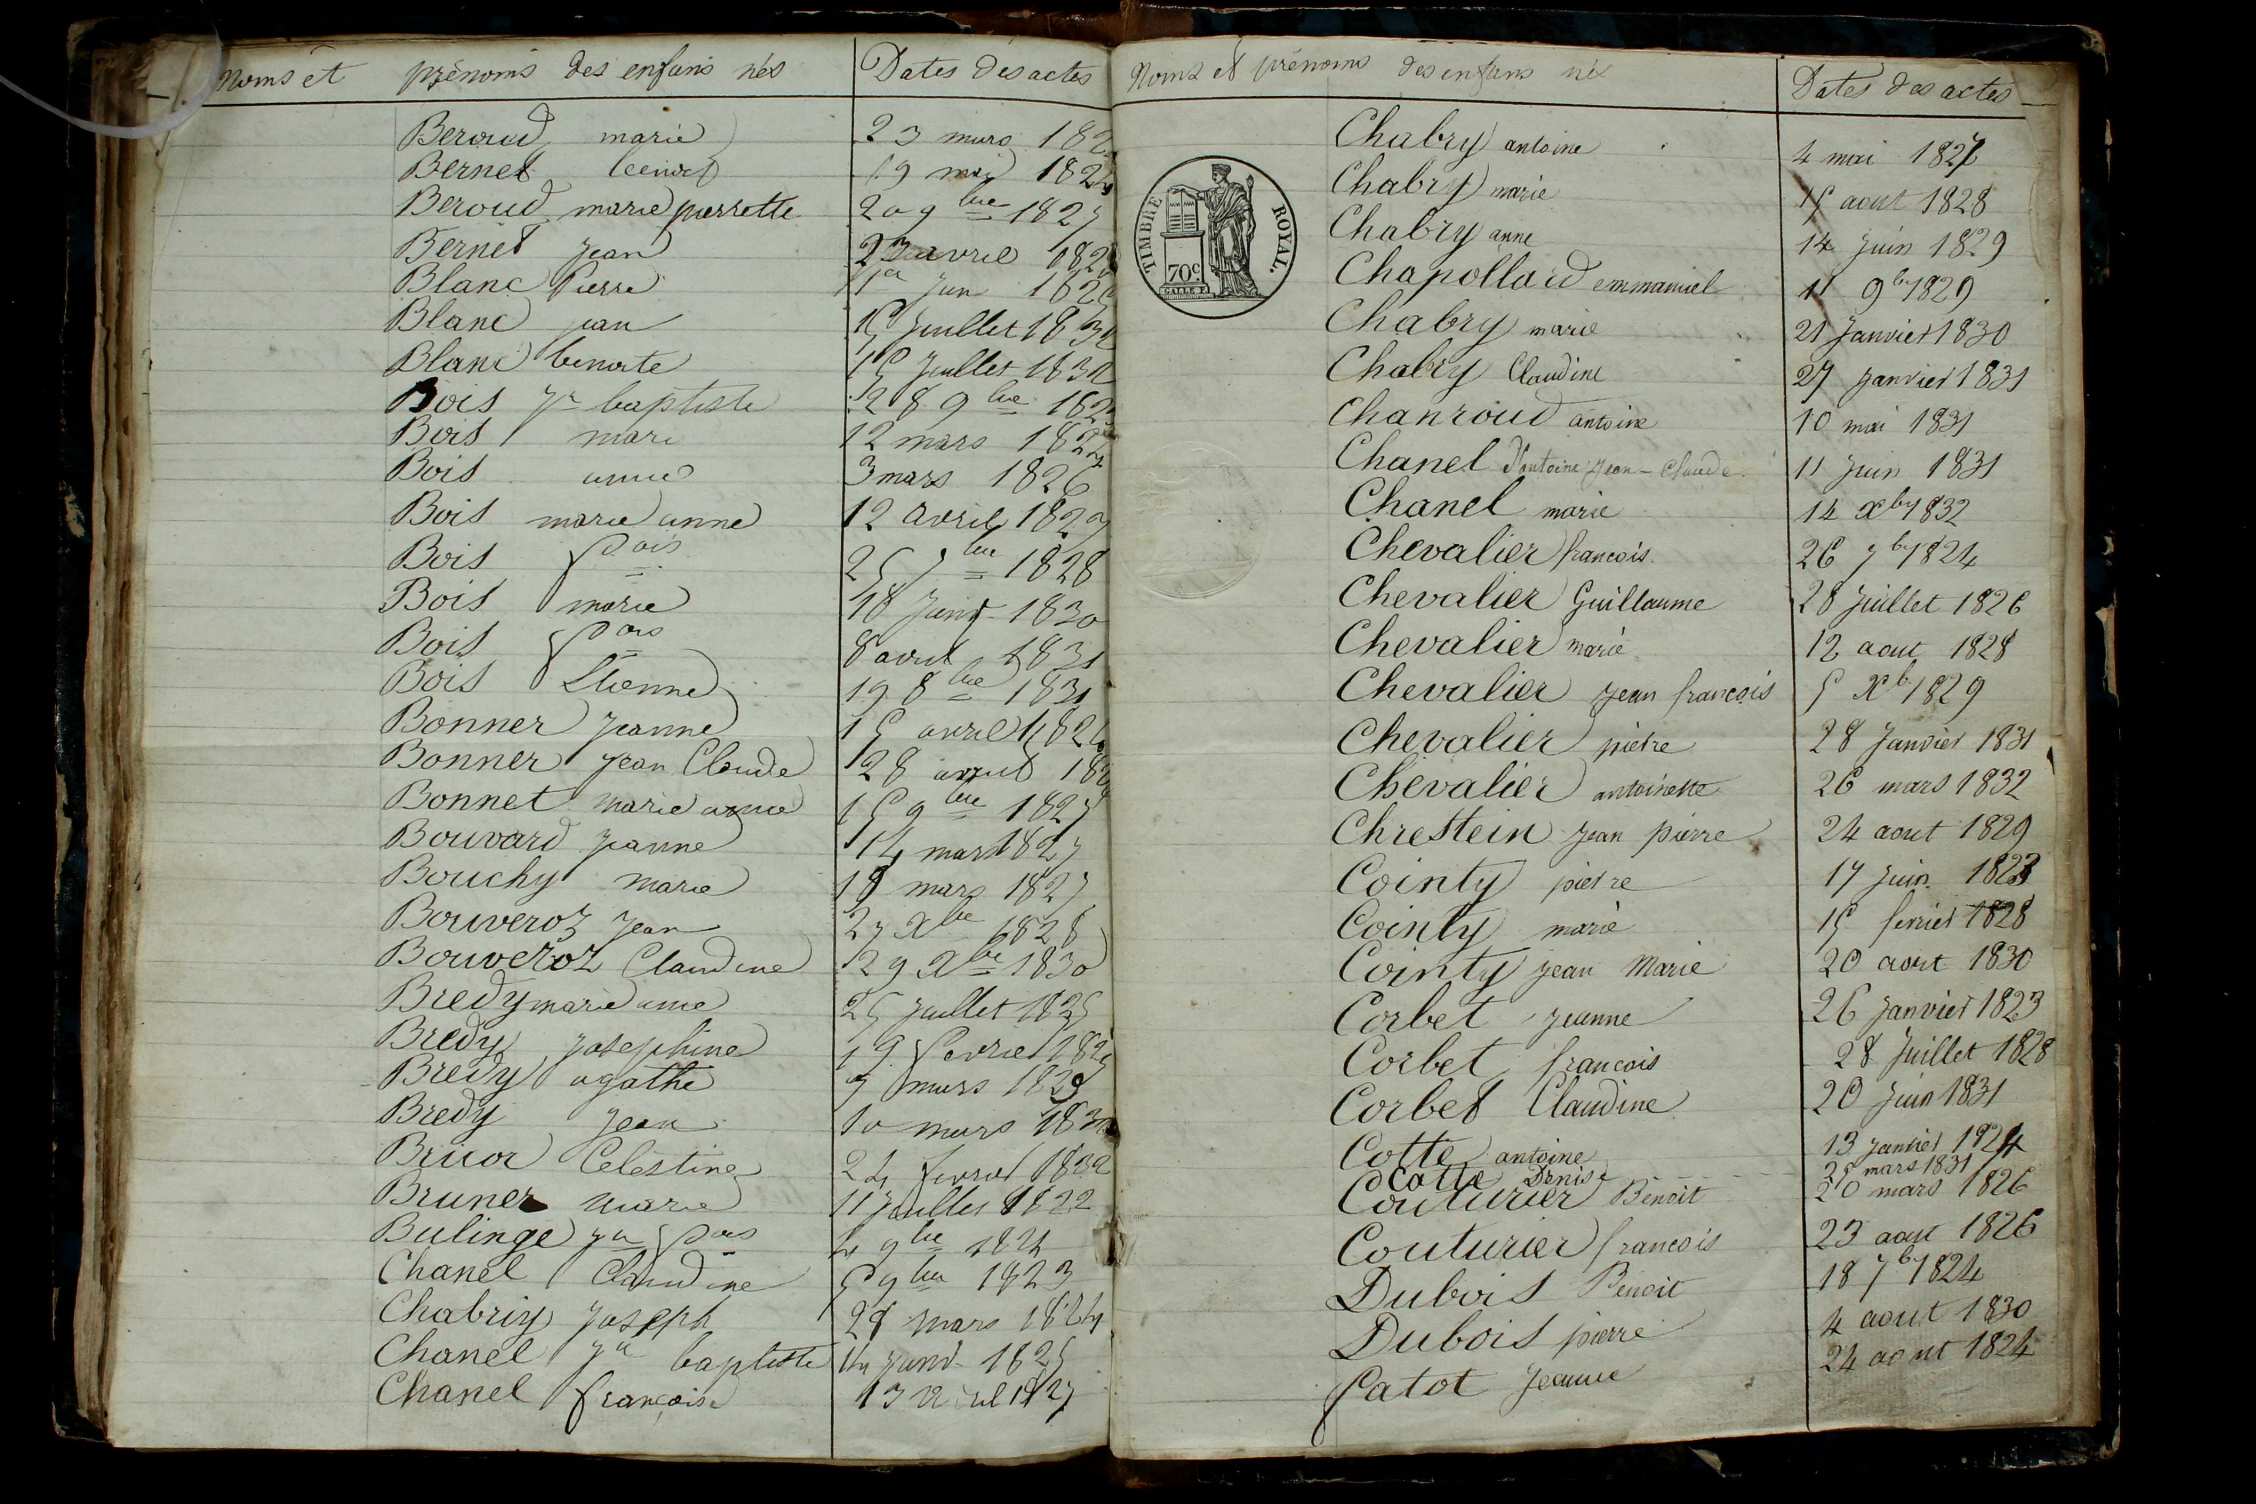 Noms et prénoms des enfans nés Dates des actes
Beroud marie 23 mars 182
Bernet 19 mai 182
Beroud marie pierrette 20 9bre 1827
Bernet Jean 23 avril 182
Blanc Pierre 1er Juin 182
Blanc jean 15 Juillet 183
Blanc benoite 15 Juillet 183
Bois Jn baptiste 28 9bre 182
Bois marie 12 mars 182
Bois anne 3 mars 1826
Bois marie anne 12 avril 1827
Bois fçois 25 7bre 1828
Bois marie 18 Juin 1830
Bois fçois 8 avril 1831
Bois Etienne 19 8bre 1831
Bonner Jeanne 15 avril 182
Bonner Jean Claude 28 avril 18
Bonnet marie anne 15 9bre 1827
Bouvard Jeanne 14 mars 1827
Bouchy marie 18 mars 1827
Bouveroz Jean 27 Xbre 1828
Bouveroz Claudine 29 Xbre 1830
Bredy marie anne 25 Juillet 1825
Bredy Josephine 19 fevrier 182
Bredy agathe 7 mars 1829
Bredy Jean 10 mars 183
Celestine 24 fevrier 1832
Bruner marie 11 Juillet 1822
Bulinge Jn fçois 4 9bre 1824
Chanel Claudine 5 9bre 1823
Chabriy Joseph 28 mars 1824
Chanel Jn baptiste 14 Juin 1825
Chanel françoise 13 avril 1827
Noms et prénoms des enfans nés Dates des actes
Chabry antoine 4 mai 1827
TIMBRE ROYAL.
70c
Chabry marie 15 aout 1828
Chabry anne 14 Juin 1829
Chapollard emmanuel 11 9b 1829
Chabry marie 21 Janvier 1830
Chabry Claudine 27 Janvier 1831
Chanroud antoine 10 mai 1831
Chanel Antoine Jean-Claude 11 Juin 1831
Chanel marie 14 Xbr 1832
Chevalier francois 26 7br 1824
Chevalier Guillaume 28 Juillet 1826
Chevalier marie 12 aout 1828
Chevalier Jean francois 5 Xb 1829
Chevalier pierre 28 Janvier 1831
Chevalier antoinette 26 mars 1832
Chrestein Jean pierre 24 aout 1829
Cointy pierre 17 Juin 1823
Cointy marie 15 fevrier 1828
Cointy Jean Marie 20 aout 1830
Corbet Jeanne 26 Janvier 1823
Corbet francois 28 Juillet 1828
Corbet Claudine 20 Juin 1831
Cotte antoine 13 Janvier 1824
Cotte Denis 25 mars 1831
Couturier Benoit 20 mars 1826
Couturier francois 23 aout 1826
Dubois Benoit 18 7b 1824
Dubois pierre 4 aout 1830
fatot Jeanne 24 aout 1824